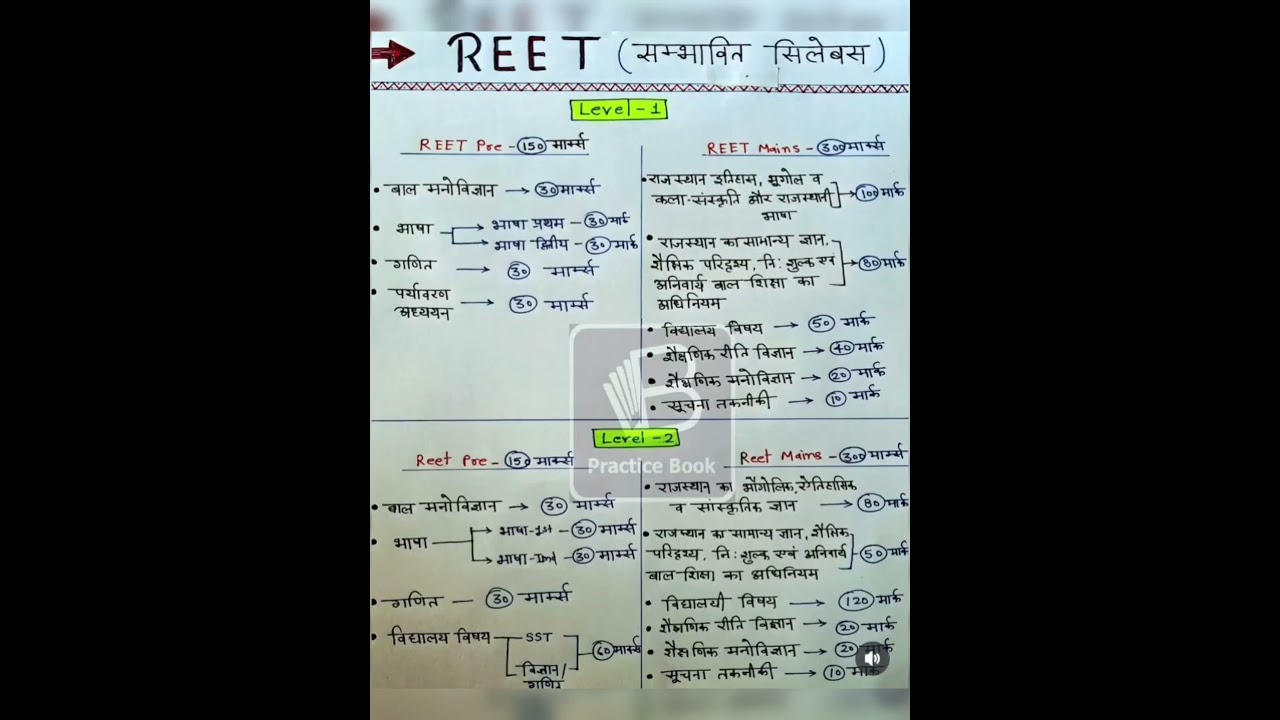 REET (सम्भावित सिलेबस)
Level - 1
REET Pre - 150 मार्क्स
• बाल मनोविज्ञान → 30 मार्क्स
• भाषा → भाषा प्रथम - 30 मार्क
→ भाषा द्वितीय - 30 मार्क
• गणित → 30 मार्क्स
• पर्यावरण
अध्ययन → 30 मार्क्स
REET Mains - 300 मार्क्स
• राजस्थान इतिहास, भूगोल व
कला-संस्कृति और राजस्थानी → 100 मार्क
भाषा
• राजस्थान का सामान्य ज्ञान,
शैक्षिक परिदृश्य, नि: शुल्क एवं → 80 मार्क
अनिवार्य बाल शिक्षा का
अधिनियम
• विद्यालय विषय → 50 मार्क
• शैक्षणिक रीति विज्ञान → 40 मार्क
• शैक्षणिक मनोविज्ञान → 20 मार्क
• सूचना तकनीकी → 10 मार्क
Level - 2
Reet Pre - 150 मार्क्स
• बाल मनोविज्ञान → 30 मार्क्स
• भाषा → भाषा-1st - 30 मार्क्स
→ भाषा-IInd - 30 मार्क्स
• गणित - 30 मार्क्स
• विद्यालय विषय - SST
60 मार्क्स
विज्ञान/
गणित
Reet Mains - 300 मार्क्स
• राजस्थान का भौगोलिक, ऐतिहासिक
व सांस्कृतिक ज्ञान → 80 मार्क
• राजस्थान का सामान्य ज्ञान, शैक्षिक
परिदृश्य, नि: शुल्क एवं अनिवार्य - 50 मार्क
बाल शिक्षा का अधिनियम
• विद्यालयी विषय → 120 मार्क
• शैक्षणिक रीति विज्ञान → 20 मार्क
• शैक्षणिक मनोविज्ञान → 20 मार्क
• सूचना तकनीकी → 10 मार्क
Practice Book